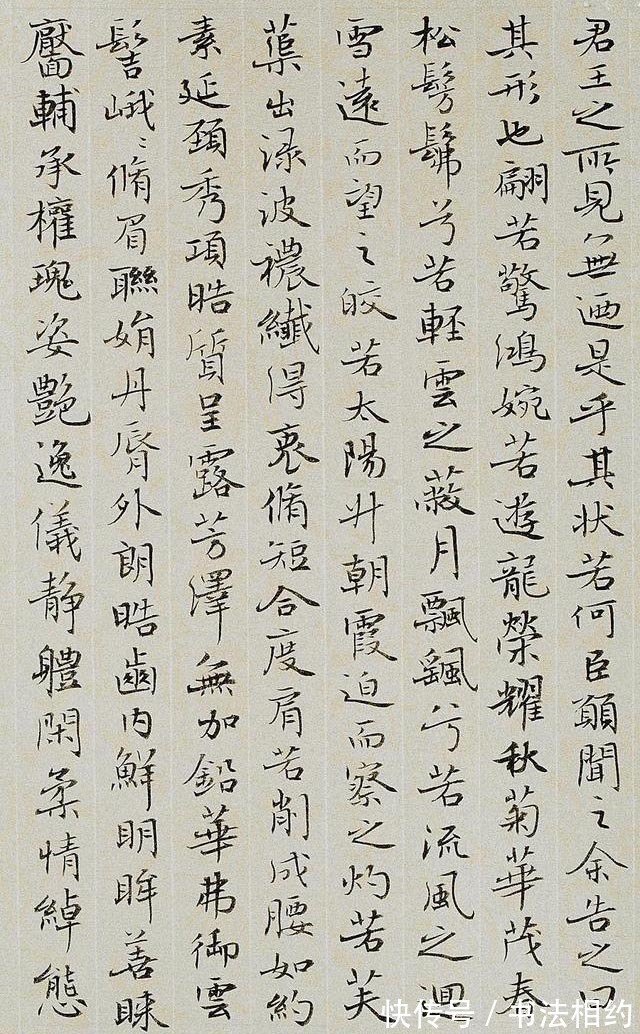 君王之所見無迺是乎其状若何臣願聞之余告之曰
其形也翩若驚鴻婉若遊龍榮耀秋菊華茂春
松髣髴兮若輕雲之蔽月飄飖兮若流風之迴
雪遠而望之皎若太陽升朝霞迫而察之灼若芙
蕖出渌波穠纖得衷脩短合度肩若削成腰如約
素延頸秀項晧質呈露芳澤無加鉛華弗御雲
髻峨〻脩眉聯娟丹脣外朗晧齒内鮮明眸善睞
靨輔承權瑰姿艷逸儀静體閑柔情綽態
快传号/书法相约